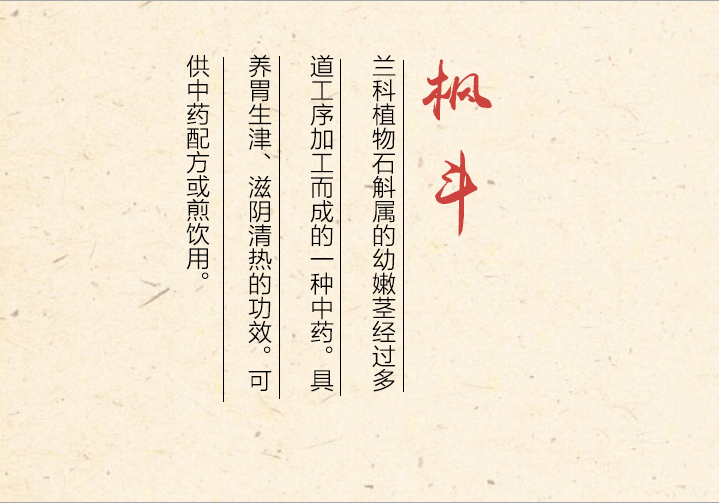 枫斗
兰科植物石斛属的幼嫩茎经过多
道工序加工而成的一种中药。具
养胃生津、滋阴清热的功效。可
供中药配方或煎饮用。